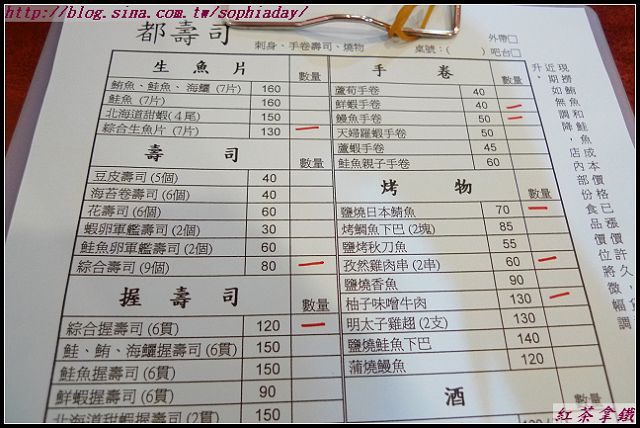 http://blog.sina.com.tw/sophiaday/
都壽司
刺身、手卷壽司、燒物
桌號:( )
外帶□
吧台□
生魚片 數量
鮪魚、鮭魚、海鱺 (7片) 160
鮭魚 (7片) 160
北海道甜蝦(4尾) 150
綜合生魚片 (7片) 130
壽司 數量
豆皮壽司 (5個) 40
海苔卷壽司 (6個) 40
花壽司 (6個) 60
蝦卵軍艦壽司 (2個) 30
鮭魚卵軍艦壽司 (2個) 60
綜合壽司 (9個) 80
握壽司 數量
綜合握壽司 (6貫) 120
鮭、鮪、海鱺握壽司 (6貫) 150
鮭魚握壽司 (6貫) 150
鮮蝦握壽司 (6貫) 90
北海道甜蝦握壽司 (2貫) 150
手卷 數量
蘆筍手卷 40
鮮蝦手卷 40
鰻魚手卷 50
天婦羅蝦手卷 50
蘆蝦手卷 45
鮭魚親子手卷 60
烤物 數量
鹽燒日本鯖魚 70
烤鯛魚下巴 (2塊) 85
鹽烤秋刀魚 55
孜然雞肉串 (2串) 60
鹽燒香魚 90
柚子味噌牛肉 130
明太子雞翅 (2支) 130
鹽燒鮭魚下巴 140
蒲燒鰻魚 120
酒 數量
現撈如魚和鮭魚成本價格已漲價許久
近期無調降,店內部份食品價位將微幅調
升。
紅茶拿鐵